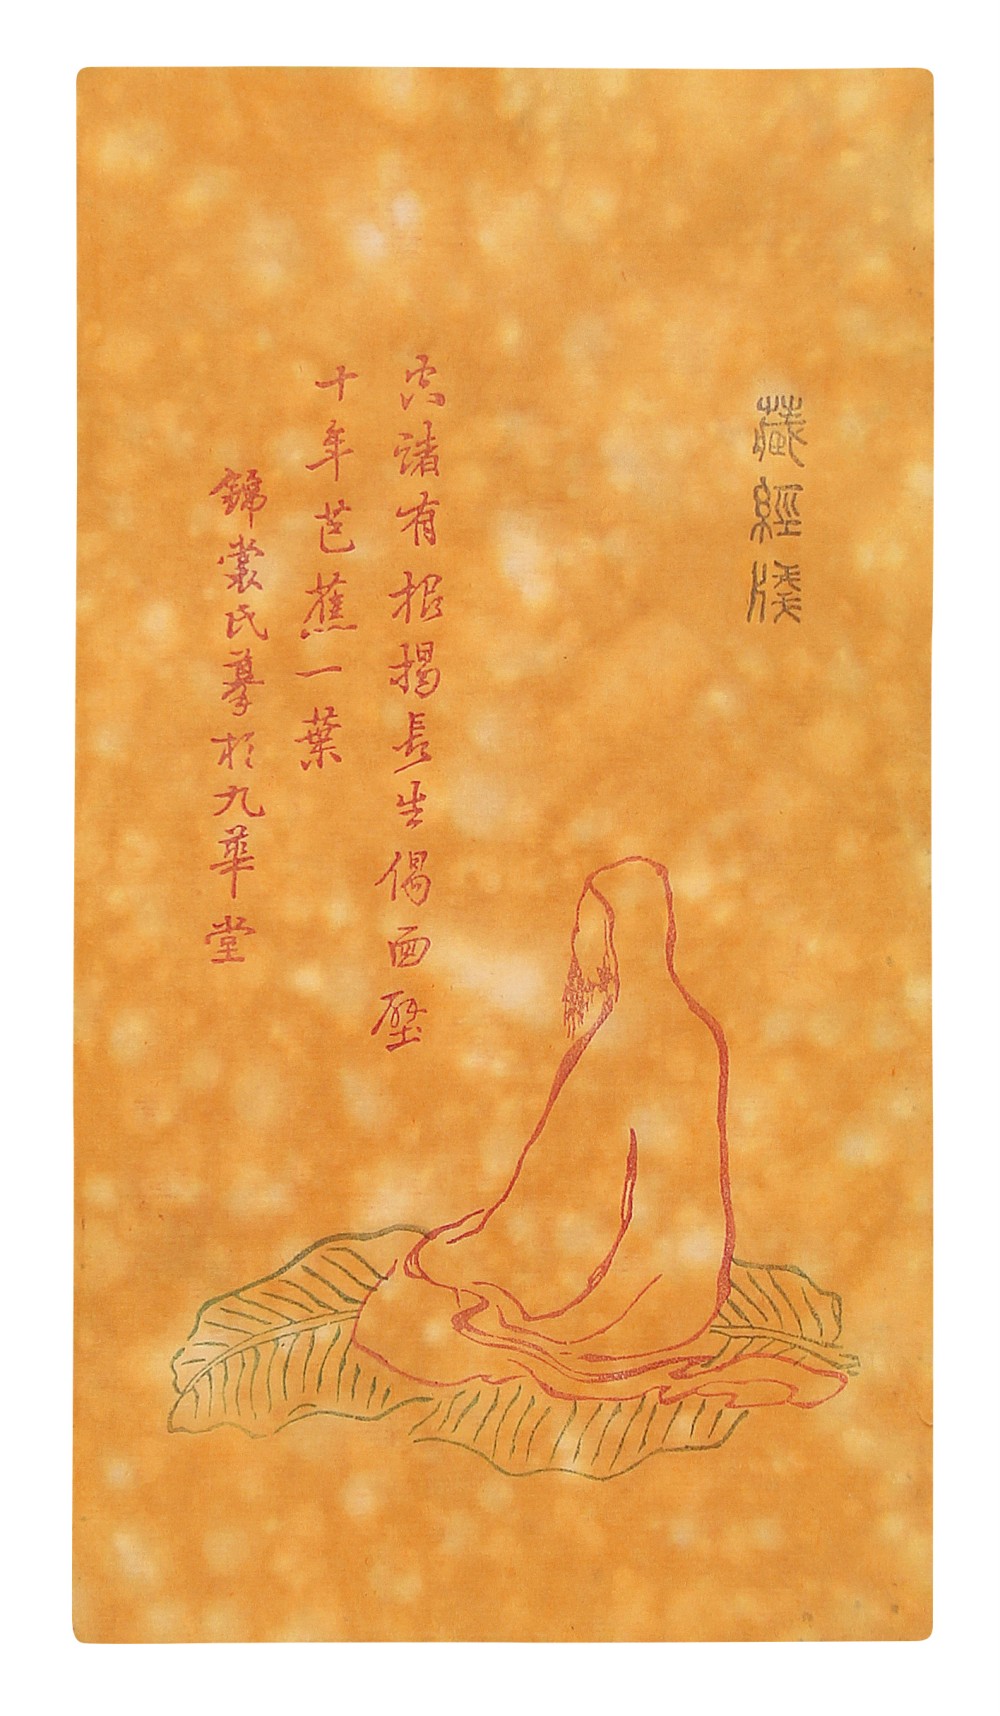 藏經牋
空諸有相揭長生偈面壁
十年芭蕉一葉
錦裳氏摹於九華堂